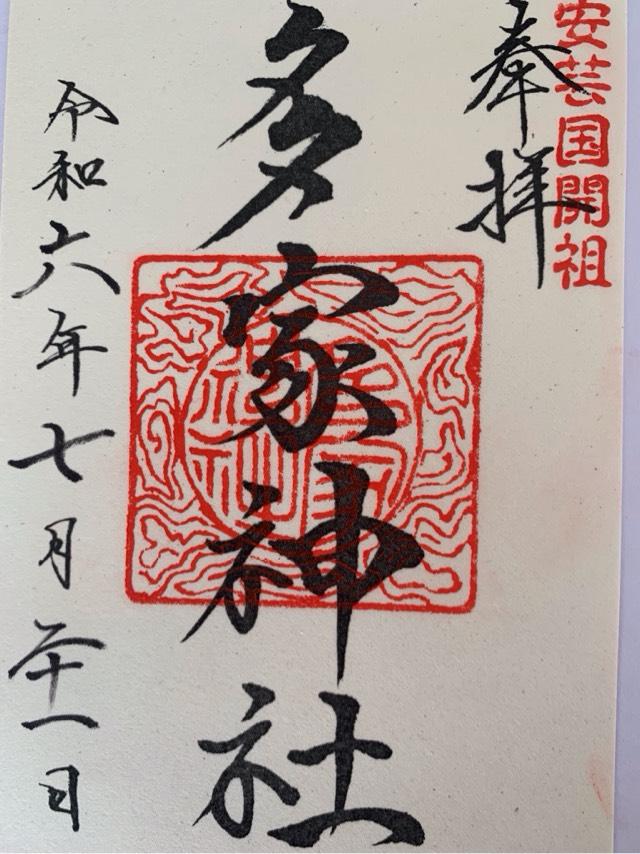 安芸国開祖
奉拝
多家神社
令和六年七月二十一日